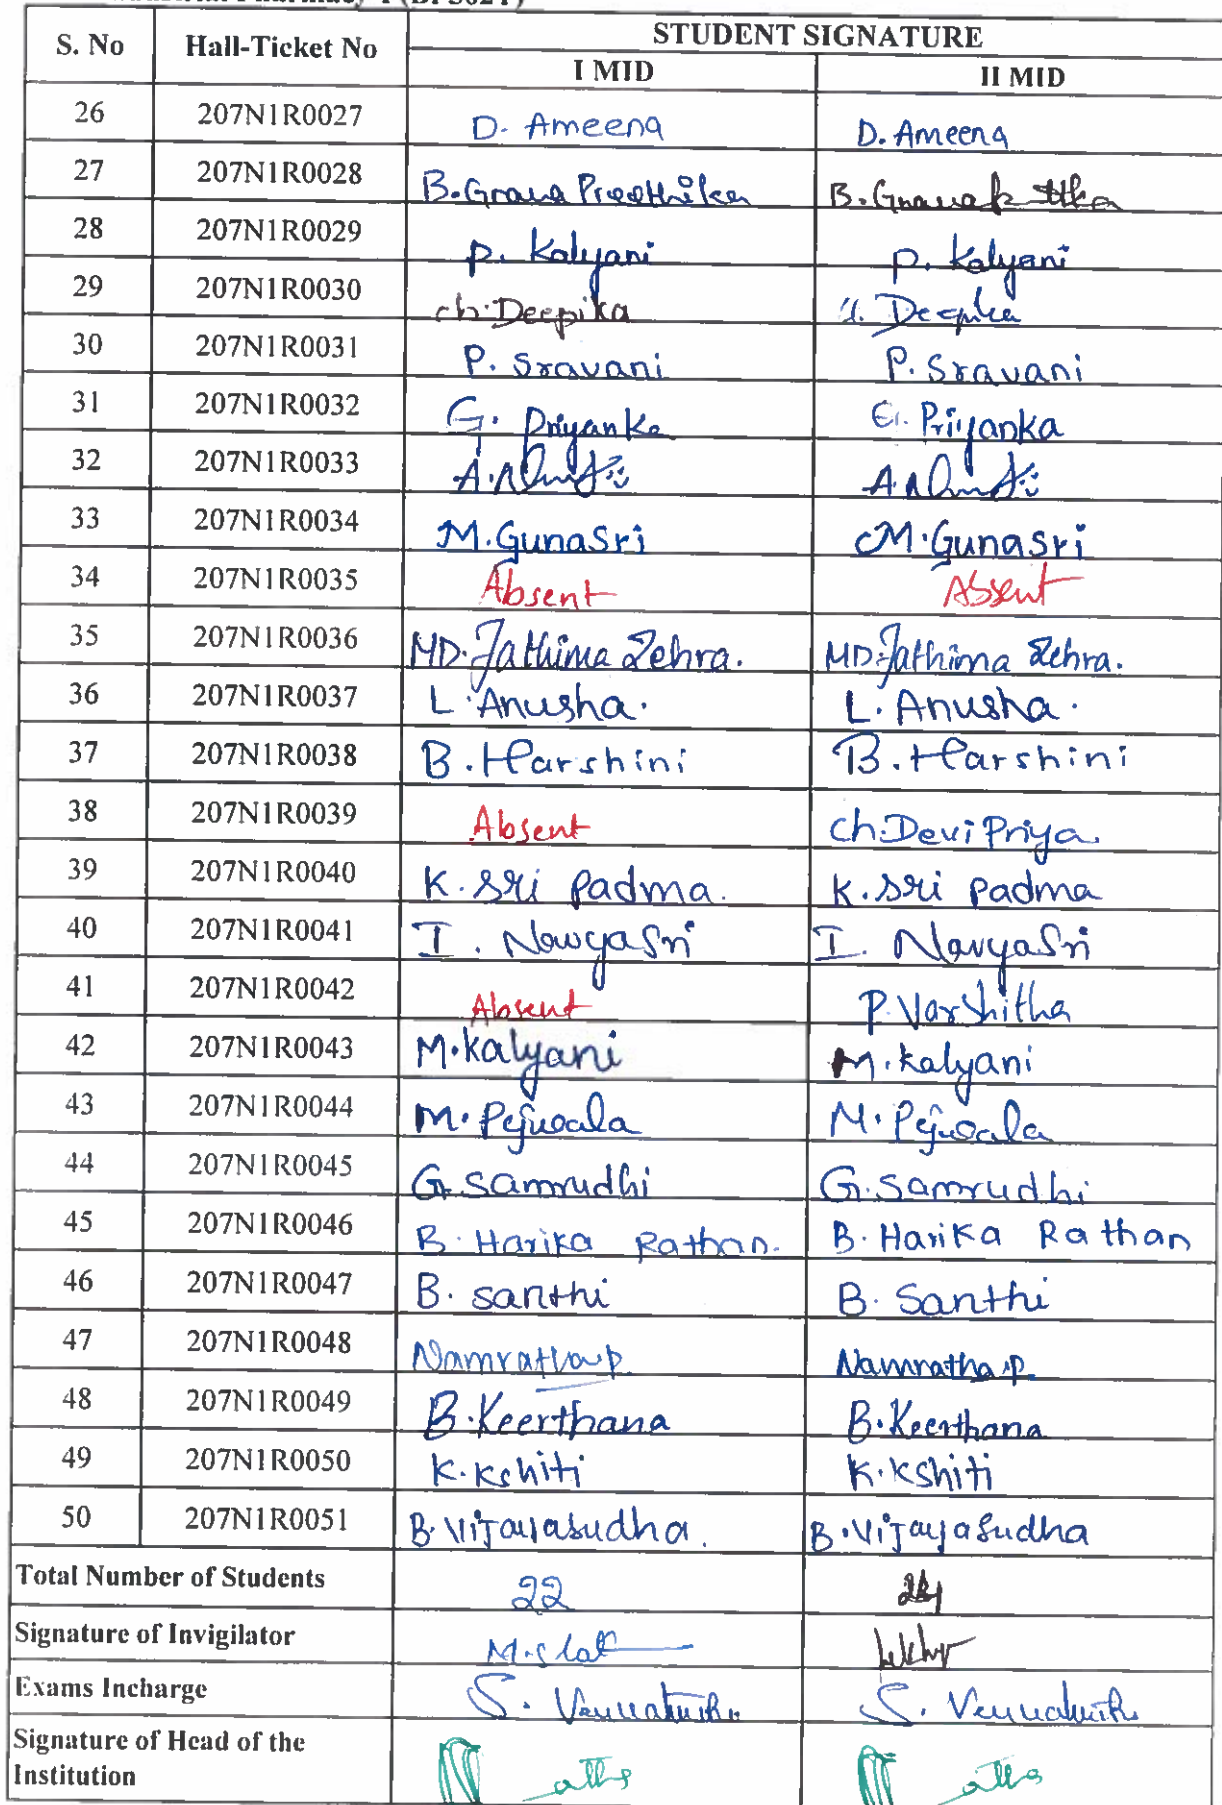 S. No Hall-Ticket No STUDENT SIGNATURE
I MID II MID
26 207N1R0027 D. Ameena D. Ameena
27 207N1R0028 B.Grana Preethika B.
28 207N1R0029 P. Kalyani P. Kalyani
29 207N1R0030 ch.Deepika Deepika
30 207N1R0031 P. Sravani P. Sravani
31 207N1R0032 G. Priyanka G. Priyanka
32 207N1R0033
33 207N1R0034 M.GunaSri M.GunaSri
34 207N1R0035 Absent Absent
35 207N1R0036 MD.Fathima Zehra. MD.Fathima Zehra.
36 207N1R0037 L.Anusha. L.Anusha.
37 207N1R0038 B.Harshini B.Harshini
38 207N1R0039 Absent ch.Devi Priya.
39 207N1R0040 K. Sri Padma. K. Sri Padma
40 207N1R0041 I. NavyaSri I. NavyaSri
41 207N1R0042 Absent P.Varshitha
42 207N1R0043 M.Kalyani M.Kalyani
43 207N1R0044 M. Pejwala M. Pejwala
44 207N1R0045 G.Samrudhi G.Samrudhi
45 207N1R0046 B. Harika Rathan. B. Harika Rathan
46 207N1R0047 B. santhi B. Santhi
47 207N1R0048 Namratha.p. Namratha.p.
48 207N1R0049 B.Keerthana B.Keerthana
49 207N1R0050 K.Kshiti K.Kshiti
50 207N1R0051 B.Vijayasudha. B.Vijayasudha
Total Number of Students 22 24
Signature of Invigilator
Exams Incharge S. S.
Signature of Head of the
Institution